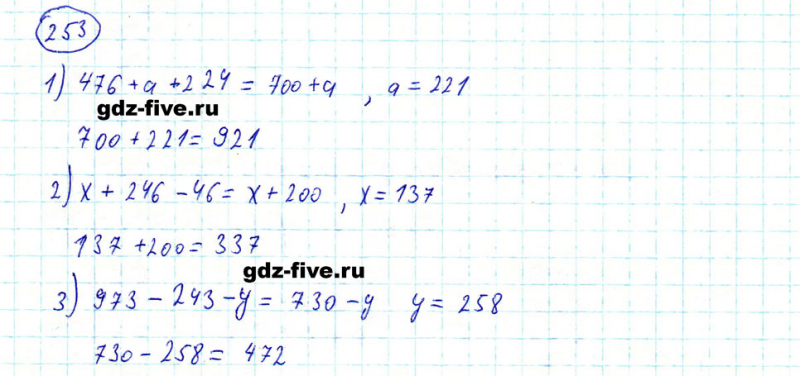 253
1) 476 + a + 224 = 700 + a , a = 221
gdz-five.ru
700 + 221 = 921
2) x + 246 - 46 = x + 200 , x = 137
137 + 200 = 337
gdz-five.ru
3) 973 - 243 - y = 730 - y y = 258
730 - 258 = 472